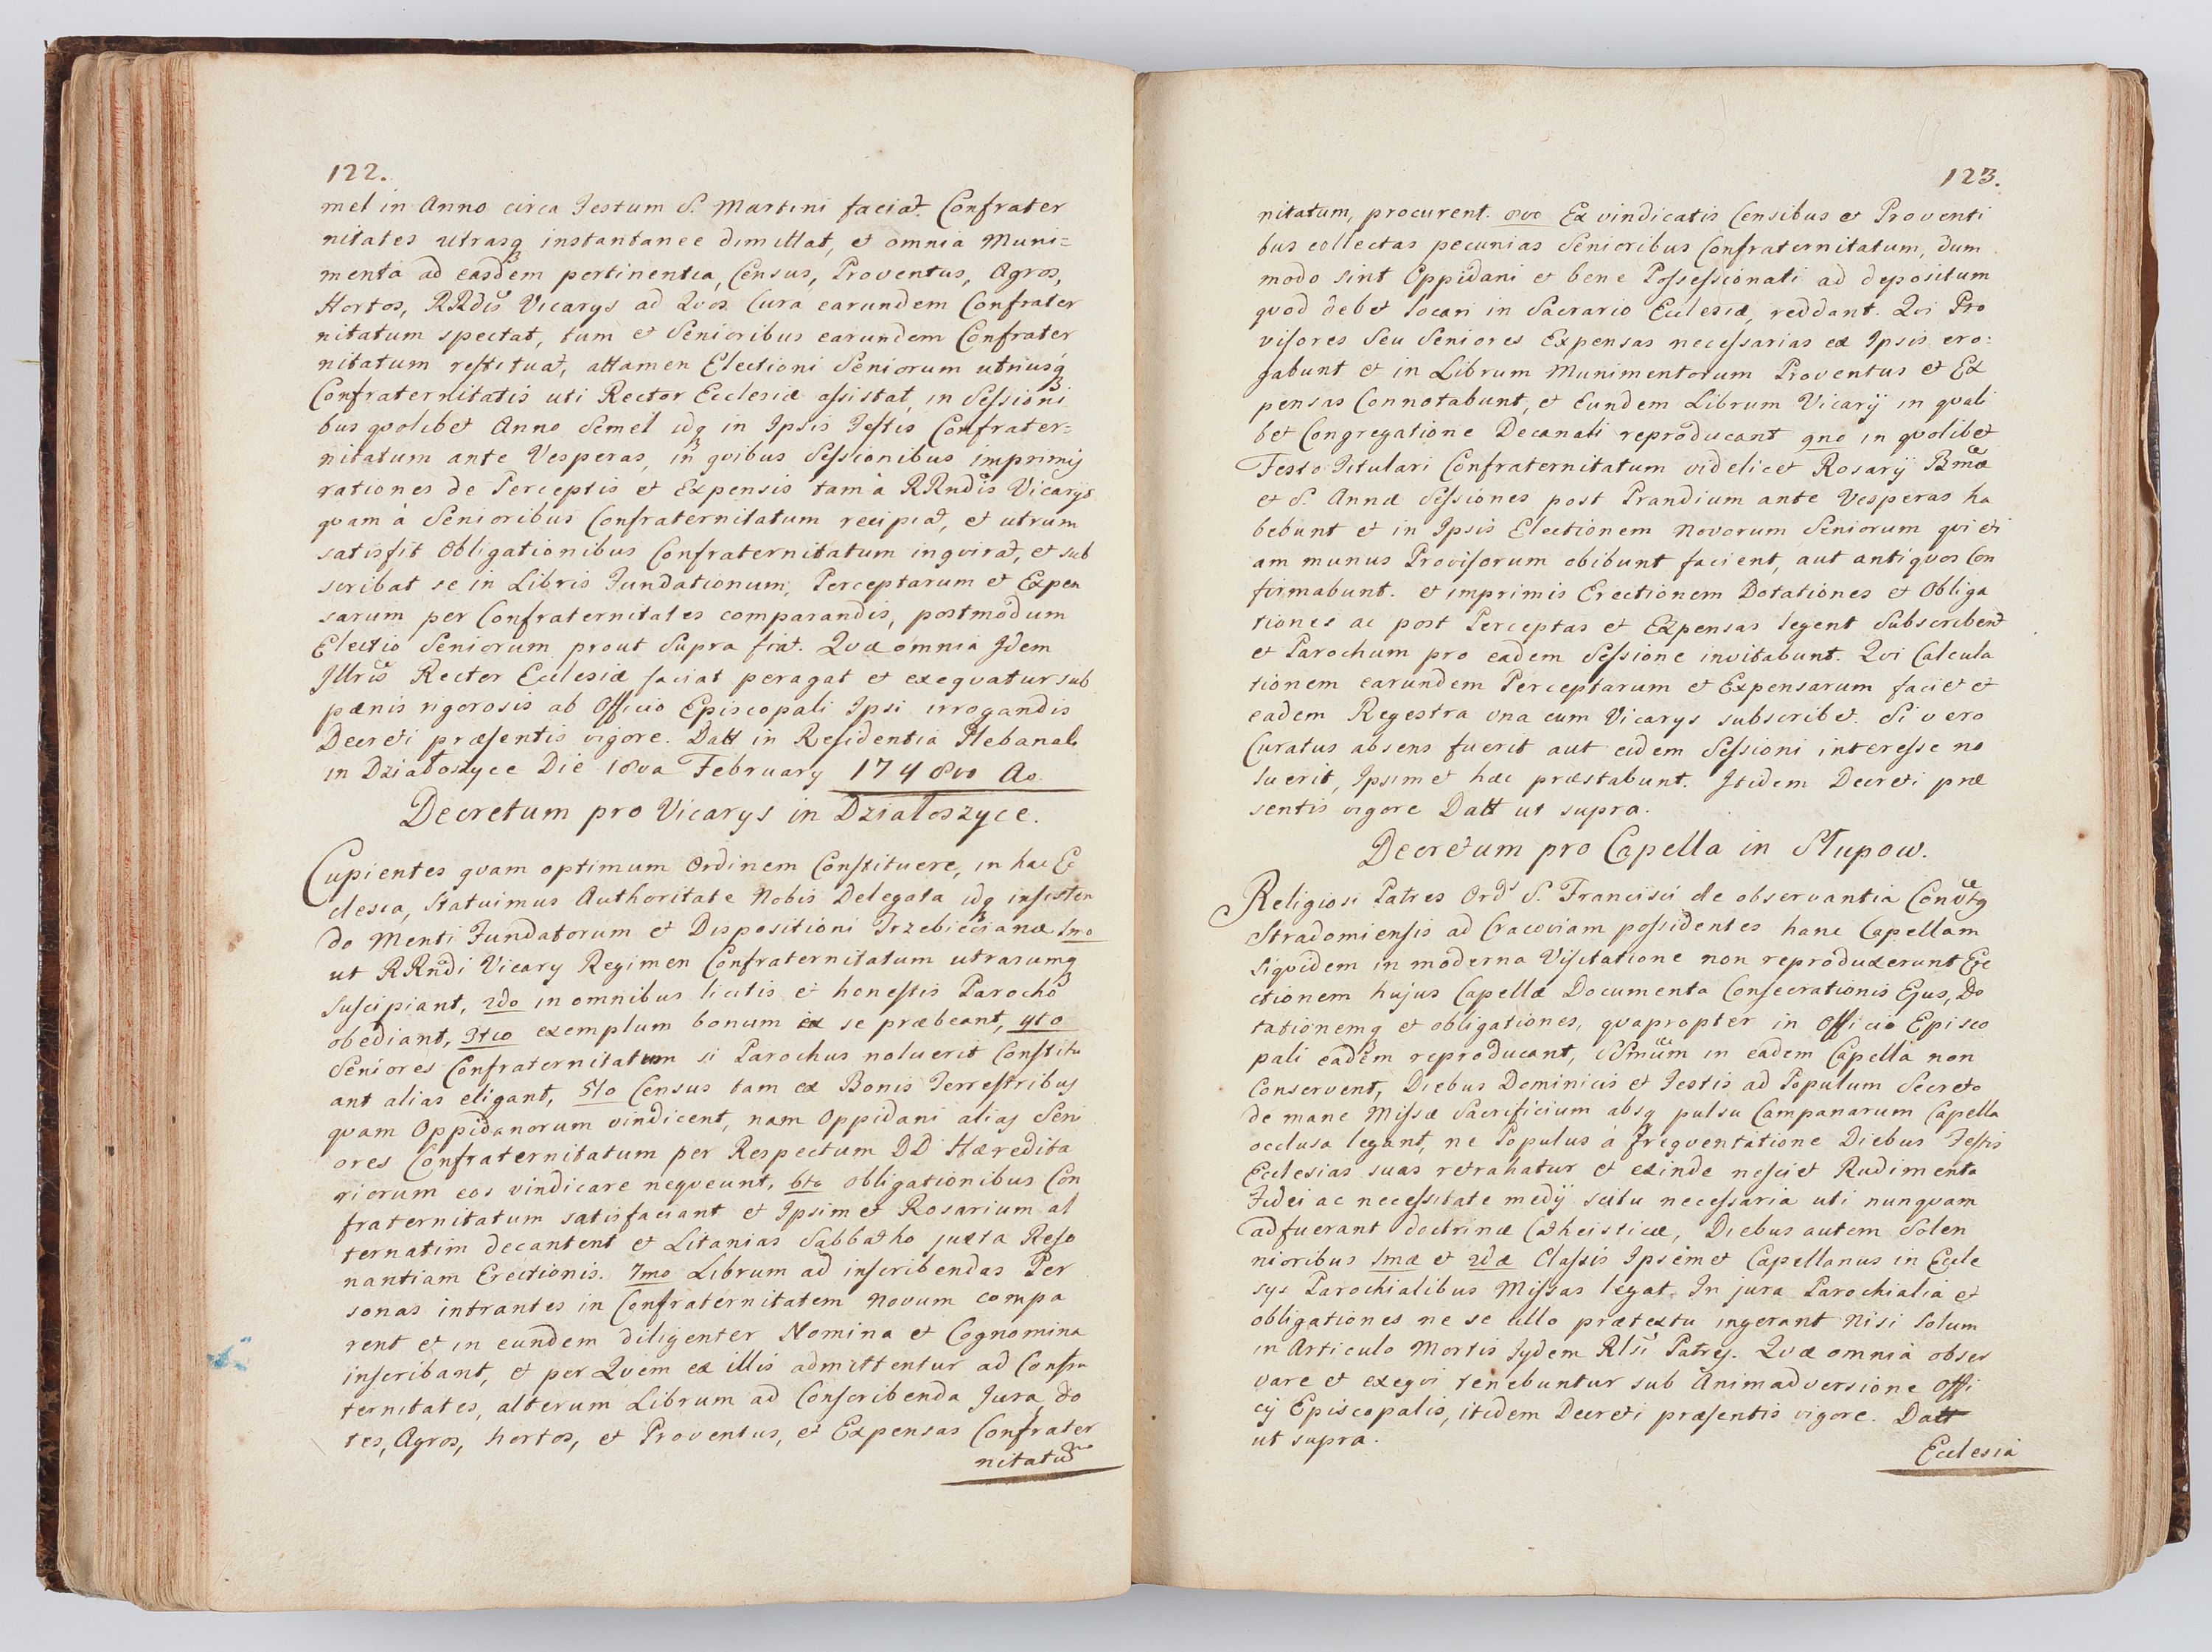 122.
mel in Anno circa Festum S. Martini faciat. Confrater
nitates utrasq instantanee dimittat, et omnia Muni=
menta ad easdem pertinentia, Census, Proventus, Agros,
Hortos, RRdis Vicarys ad Quos Cura earundem Confrater
nitatum spectat, tum et Senioribus earundem Confrater
nitatum restituat, attamen Electioni Seniorum utriusq
Confraternitatis uti Rector Ecclesiæ assistat, in Sessioni
bus quolibet Anno Semel idq in Ipsis Festis Confrater=
nitatum ante Vesperas, in quibus Sessionibus imprimis
rationes de Perceptis et Expensis tam à RRndis Vicarys
quam à Senioribus Confraternitatum recipiat, et utrum
satisfit Obligationibus Confraternitatum inquirat, et sub
scribat se in Libris Fundationum, Perceptarum et Expen
sarum per Confraternitates comparandis, postmodum
Electio Seniorum prout Supra fiat. Quæ omnia Idem
Illris Rector Ecclesiæ faciat peragat et exequatur sub
pænis rigorosis ab Officio Episcopali Ipsi irrogandis
Decreti præsentis vigore. Datt in Residentia Plebanali
in Działoszyce Die 18va February 1748vo Ao.
Decretum pro Vicarys in Działoszyce.
Cupientes quam optimum Ordinem Constituere, in hac Ec
clesia, Statuimus Authoritate Nobis Delegata idq insisten
do Menti Fundatorum et Dispositioni Trzebiccianæ 1mo
ut RRndi Vicary Regimen Confraternitatum utrarumq
suscipiant, 2do in omnibus licitis et honestis Parocho
obediant, 3tio exemplum bonum ex se præbeant, 4to
Seniores Confraternitatum si Parochus noluerit Constitu
ant alias eligant, 5to Census tam ex Bonis Terrestribus
quam Oppidanorum vindicent, nam Oppidani alias Seni
ores Confraternitatum per Respectum DD Hæredita
riorum eos vindicare nequeunt, 6to obligationibus Con
fraternitatum satisfaciant et Ipsimet Rosarium al
ternatim decantent et Litanias Sabbatho juxta Reso
nantiam Erectionis. 7mo Librum ad inscribendas Per
sonas intrantes in Confraternitatem Novum compa
rent et in eundem diligenter Nomina et Cognomina
inscribant, et per Quem ex illis admittentur ad Confra
ternitates, alterum Librum ad Conscribenda Jura, do
tes, Agros, hortos, et Proventus, et Expensas Confrater
nitatum
123.
nitatum, procurent. 8vo Ex vindicatis Censibus et Proventi
bus collectas pecunias Senioribus Confraternitatum, dum
modo sint Oppidani et bene Possessionati ad depositum
quod debet locari in Sacrario Ecclesiæ, reddant. Qui Pro
visores Seu Seniores Expensas necessarias ex Ipsis ero=
gabunt et in Librum Munimentorum Proventus et Ex
pensas Connotabunt, et Eundem Librum Vicarij in quali
bet Congregatione Decanali reproducant 9no in quolibet
Festo Titulari Confraternitatum videlicet Rosarij Bmæ
et S. Annæ Sessiones post Prandium ante Vesperas ha
bebunt et in Ipsis Electionem Novorum Seniorum qui eti
am munus Provisorum obibunt facient, aut antiquos Con
firmabunt. et imprimis Erectionem Dotationes et Obliga
tiones ac post Perceptas et Expensas legent Subscribent
et Parochum pro eadem Sessione invitabunt. Qui Calcula
tionem earundem Perceptarum et Expensarum faciet et
eadem Regestra una cum Vicarys subscribet. Si vero
Curatus absens fuerit aut eidem Sessioni interesse no
luerit, Ipsimet hæc præstabunt. Itidem Decreti præ
sentis vigore Datt ut supra.
Decretum pro Capella in Słupow.
Religiosi Patres Ord S. Francisci de observantia Convtq
Stradomiensis ad Cracoviam possidentes hanc Capellam
siquidem in moderna Visitatione non reproduxerunt Ere
ctionem hujus Capellæ Documenta Consecrationis Ejus, Do
tationemq et obligationes, quapropter in Officio Episco
pali eadem reproducant, SSmum in eadem Capella non
Conservent, Diebus Dominicis et Festis ad Populum Secreto
de mane Missæ Sacrificium absq pulsu Campanarum Capella
occlusa legant, ne Populus à frequentatione Diebus Festis
Ecclesias suas retrahatur et exinde nesciet Rudimenta
Fidei ac necessitate medij scitu necessaria uti nunquam
adfuerant doctrinæ Catheisticæ, Diebus autem Solen
nioribus 1mæ et 2dæ Classis Ipsemet Capellanus in Eccle
sys Parochialibus Missas legat. In jura Parochialia et
obligationes ne se ullo prætextu ingerant Nisi Solum
in Articulo Mortis Iydem Rlsi Patres. Quæ omnia obser
vare et exequi tenebuntur sub Animadversione Offi
cij Episcopalis, itidem Decreti præsentis vigore. Datt
ut supra.
Ecclesia